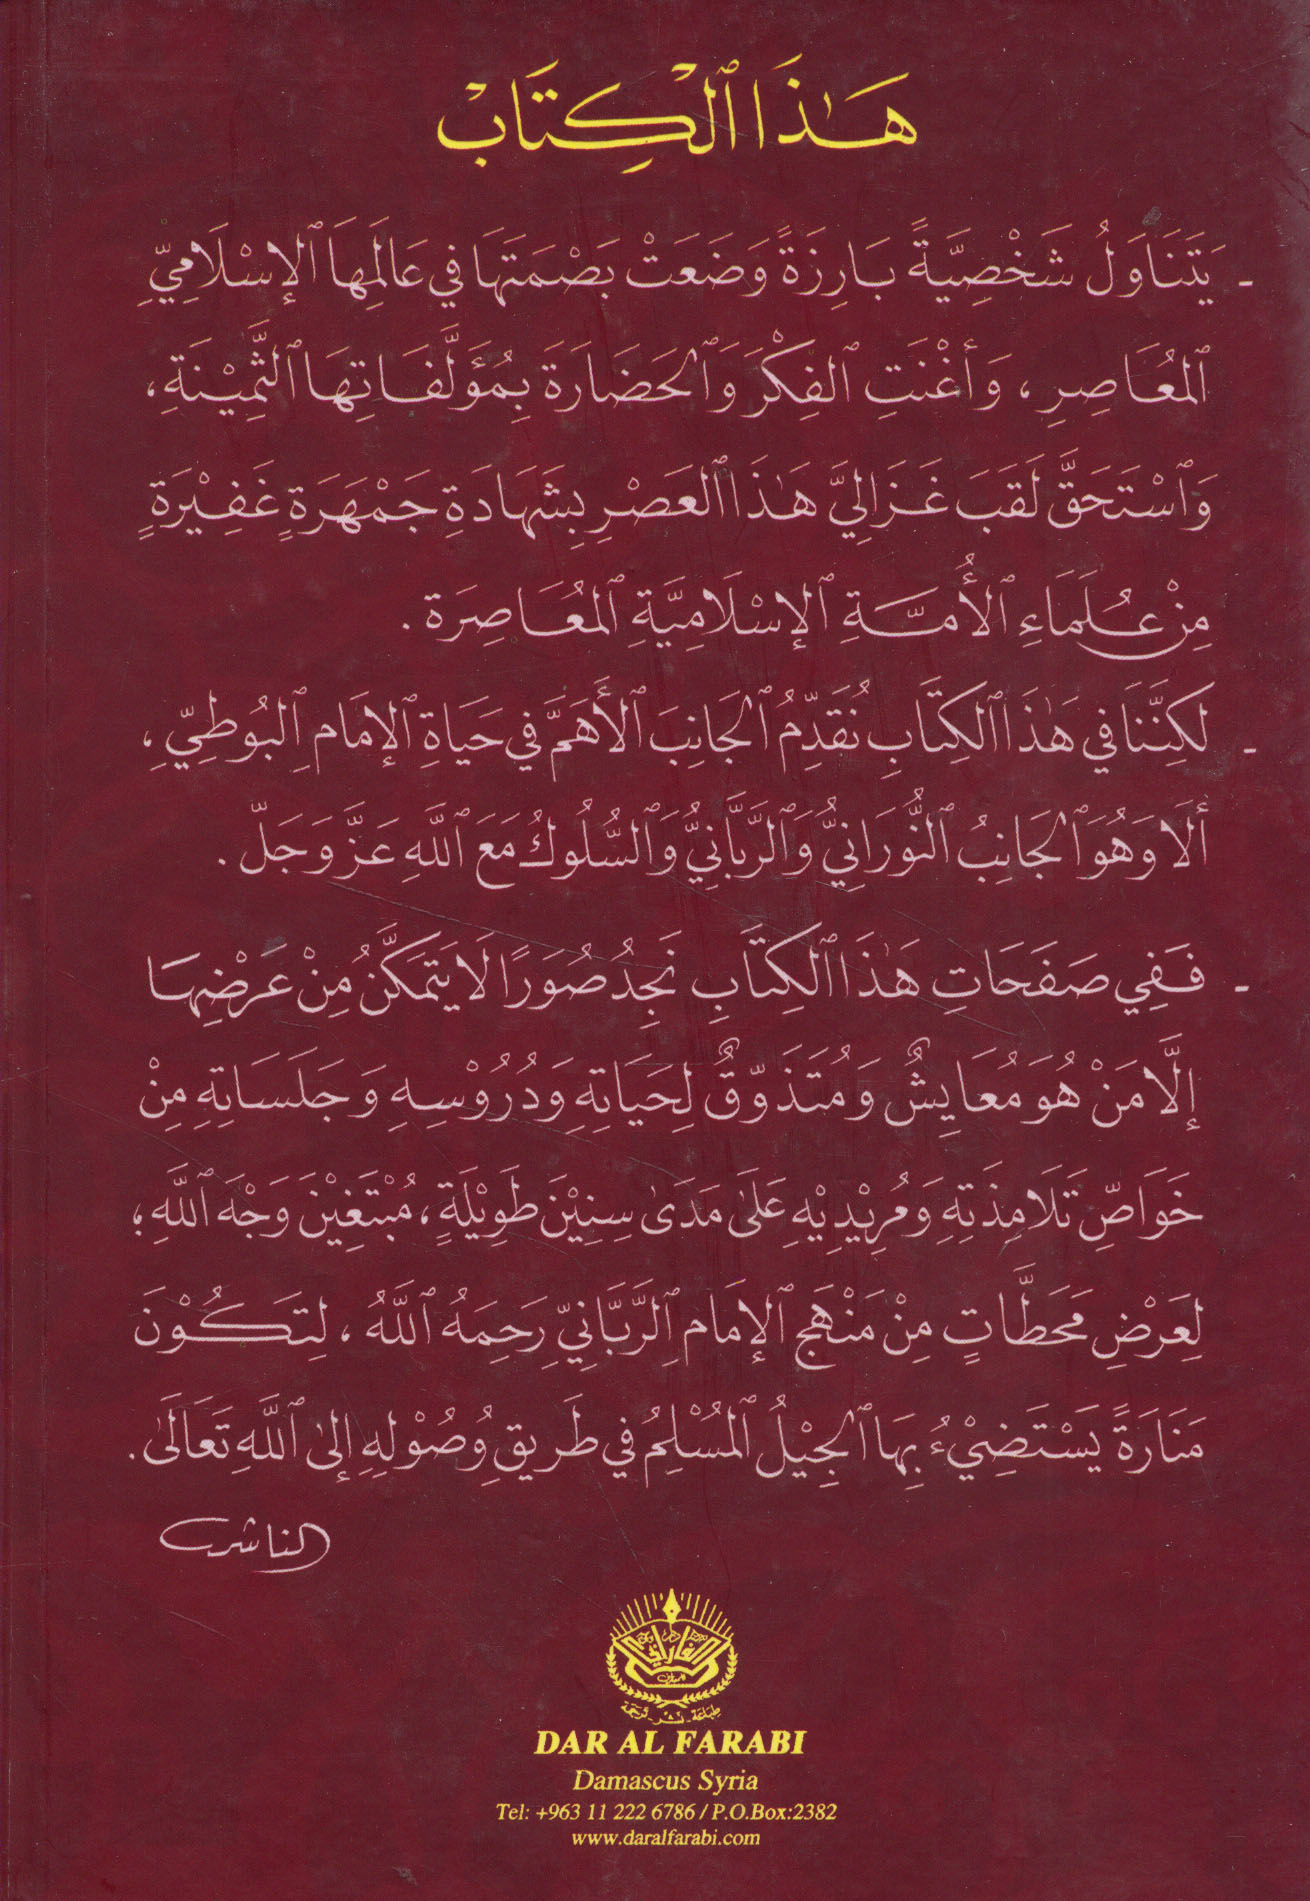 هَٰذَا ٱلْكِتَابْ
- يَتَنَاوَلُ شَخْصِيَّةً بَارِزَةً وَضَعَتْ بَصْمَتَهَا فِي عَالَمِهَا ٱلإِسْلَامِيِّ
ٱلمُعَاصِرِ ، وَأَغْنَتِ ٱلفِكْرَ وَٱلحَضَارَةَ بِمُؤَلَّفَاتِهَا ٱلثَّمِيْنَةِ ،
وَٱسْتَحَقَّ لَقَبَ غَزَالِيَّ هَٰذَا ٱلعَصْرِ بِشَهَادَةِ جَمْهَرَةٍ غَفِيْرَةٍ
مِنْ عُلَمَاءِ ٱلأُمَّةِ ٱلإِسْلَامِيَّةِ ٱلمُعَاصِرَة .
- لَكِنَّنَا فِي هَٰذَا ٱلكِتَابِ نُقَدِّمُ ٱلجَانِبَ ٱلأَهَمَّ فِي حَيَاةِ ٱلإِمَامِ ٱلبُوطِيِّ ،
أَلَا وَهُوَ ٱلجَانِبُ ٱلنُّورَانِيُّ وَٱلرَّبَّانِيُّ وَٱلسُّلُوكُ مَعَ ٱللَّهِ عَزَّ وَجَلَّ .
- فَفِي صَفَحَاتِ هَٰذَا ٱلكِتَابِ نَجِدُ صُوَرًا لَا يَتَمَكَّنُ مِنْ عَرْضِهَا
إِلَّا مَنْ هُوَ مُعَايِشٌ وَمُتَذَوِّقٌ لِحَيَاتِهِ وَدُرُوْسِهِ وَجَلَسَاتِهِ مِنْ
خَوَاصِّ تَلَامِذَتِهِ وَمُرِيْدِيْهِ عَلَىٰ مَدَىٰ سِنِيْنَ طَوِيْلَةٍ ، مُبْتَغِيْنَ وَجْهَ ٱللَّهِ ،
لِعَرْضِ مَحَطَّاتٍ مِنْ مَنْهَجِ ٱلإِمَامِ ٱلرَّبَّانِيِّ رَحِمَهُ ٱللَّهُ ، لِتَكُوْنَ
مَنَارَةً يَسْتَضِيْءُ بِهَا ٱلجِيْلُ ٱلمُسْلِمُ فِي طَرِيقِ وُصُوْلِهِ إِلَىٰ ٱللَّهِ تَعَالَىٰ .
الناشر
دار الفارابي
طباعة - نشر - ترجمة
DAR AL FARABI
Damascus Syria
Tel: +963 11 222 6786 / P.O.Box:2382
www.daralfarabi.com